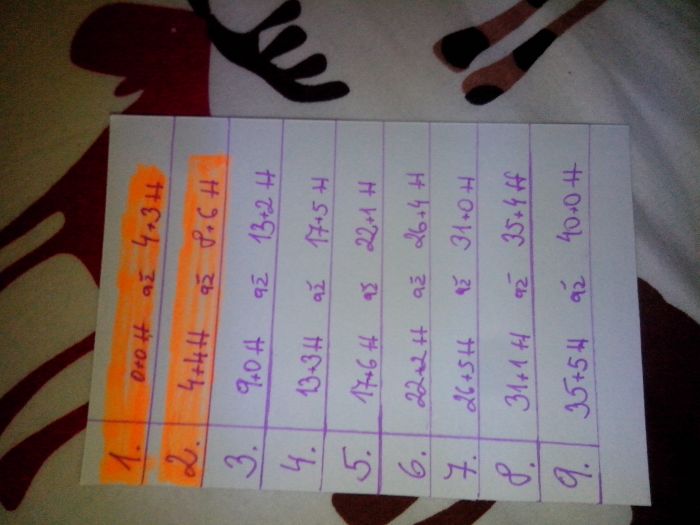 1. 0+0 H až 4+3 H
2. 4+4 H až 8+6 H
3. 9+0 H až 13+2 H
4. 13+3 H až 17+5 H
5. 17+6 H až 22+1 H
6. 22+2 H až 26+4 H
7. 26+5 H až 31+0 H
8. 31+1 H až 35+4 H
9. 35+5 H až 40+0 H